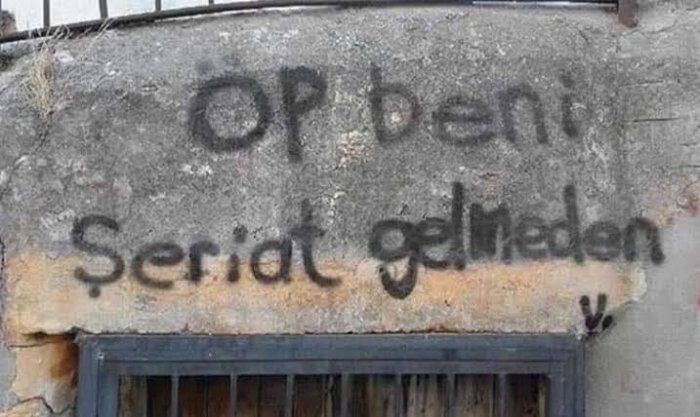 Öp beni
Şeriat gelmeden